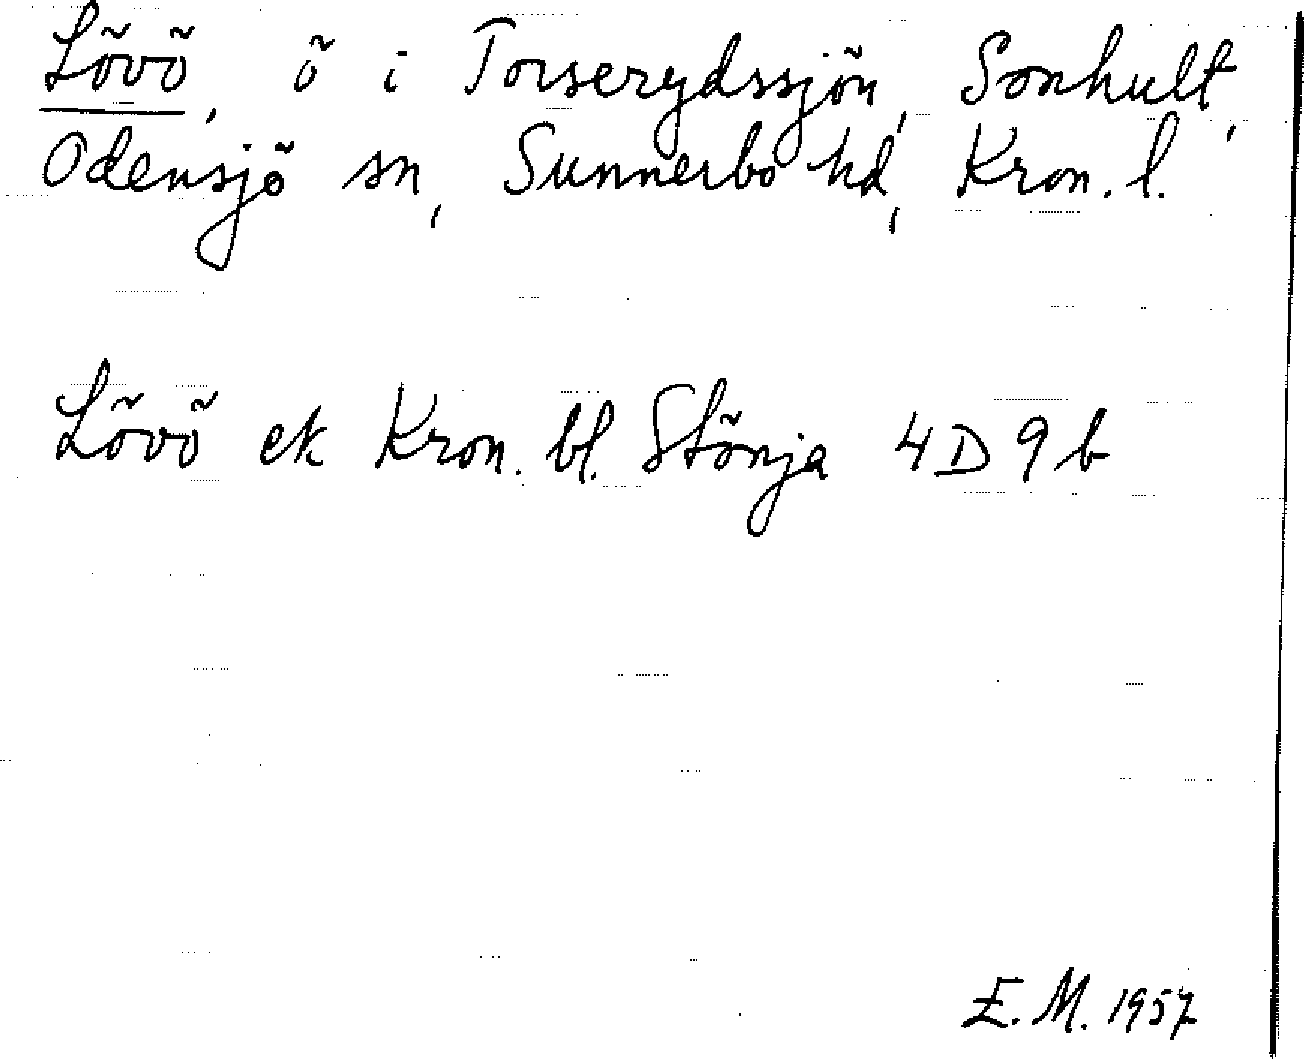 Lövö, ö i Torserydssjön, Sonhult,
Odensjö sn, Sunnerbo hd, Kron. l.
Lövö ek Kron. bl. Stönja 4D9b
E. M. 1957